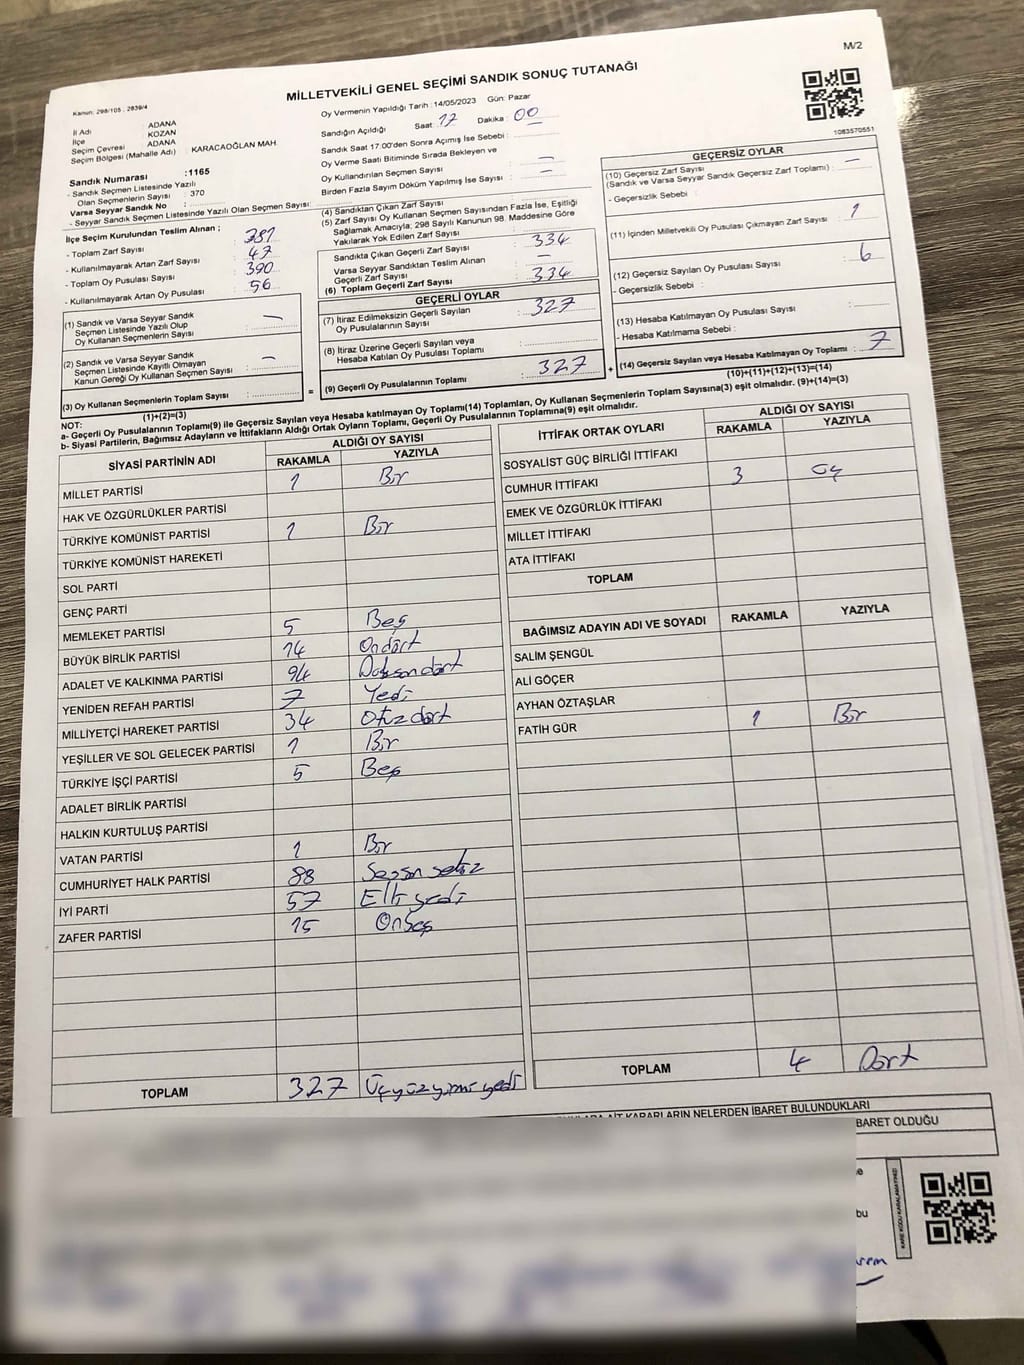 M/2
MİLLETVEKİLİ GENEL SEÇİMİ SANDIK SONUÇ TUTANAĞI
Kanun: 298/105 ; 2839/4
İl Adı : ADANA
İlçe : KOZAN
Seçim Çevresi : ADANA
Seçim Bölgesi (Mahalle Adı) : KARACAOĞLAN MAH.
Sandık Numarası :1165
- Sandık Seçmen Listesinde Yazılı
Olan Seçmenlerin Sayısı : 370
Varsa Seyyar Sandık No :
- Seyyar Sandık Seçmen Listesinde Yazılı Olan Seçmen Sayısı:
Oy Vermenin Yapıldığı Tarih : 14/05/2023 Gün: Pazar
Sandığın Açıldığı Saat : 17 Dakika : 00
Sandık Saat 17.00'den Sonra Açımış İse Sebebi :
Oy Verme Saati Bitiminde Sırada Bekleyen ve
Oy Kullandırılan Seçmen Sayısı : —
Birden Fazla Sayım Döküm Yapılmış İse Sayısı : —
1083570551
İlçe Seçim Kurulundan Teslim Alınan ;
- Toplam Zarf Sayısı : 381
- Kullanılmayarak Artan Zarf Sayısı : 47
- Toplam Oy Pusulası Sayısı : 390
- Kullanılmayarak Artan Oy Pusulası : 56
(1) Sandık ve Varsa Seyyar Sandık
Seçmen Listesinde Yazılı Olup
Oy Kullanan Seçmenlerin Sayısı : —
(2) Sandık ve Varsa Seyyar Sandık
Seçmen Listesinde Kayıtlı Olmayan
Kanun Gereği Oy Kullanan Seçmen Sayısı : —
(3) Oy Kullanan Seçmenlerin Toplam Sayısı :
(1)+(2)=(3)
(4) Sandıktan Çıkan Zarf Sayısı :
(5) Zarf Sayısı Oy Kullanan Seçmen Sayısından Fazla İse, Eşitliği
Sağlamak Amacıyla; 298 Sayılı Kanunun 98. Maddesine Göre
Yakılarak Yok Edilen Zarf Sayısı :
Sandıkta Çıkan Geçerli Zarf Sayısı : 334
Varsa Seyyar Sandıktan Teslim Alınan
Geçerli Zarf Sayısı : —
(6) Toplam Geçerli Zarf Sayısı : 334
GEÇERLİ OYLAR
(7) İtiraz Edilmeksizin Geçerli Sayılan
Oy Pusulalarının Sayısı : 327
(8) İtiraz Üzerine Geçerli Sayılan veya
Hesaba Katılan Oy Pusulası Toplamı :
= (9) Geçerli Oy Pusulalarının Toplamı : 327 +
GEÇERSİZ OYLAR
(10) Geçersiz Zarf Sayısı
(Sandık ve Varsa Seyyar Sandık Geçersiz Zarf Toplamı) : —
- Geçersizlik Sebebi :
(11) İçinden Milletvekili Oy Pusulası Çıkmayan Zarf Sayısı : 1
(12) Geçersiz Sayılan Oy Pusulası Sayısı : 6
- Geçersizlik Sebebi :
(13) Hesaba Katılmayan Oy Pusulası Sayısı :
- Hesaba Katılmama Sebebi :
(14) Geçersiz Sayılan veya Hesaba Katılmayan Oy Toplamı : 7
(10)+(11)+(12)+(13)=(14)
NOT:
a- Geçerli Oy Pusulalarının Toplamı(9) ile Geçersiz Sayılan veya Hesaba katılmayan Oy Toplamı(14) Toplamları, Oy Kullanan Seçmenlerin Toplam Sayısına(3) eşit olmalıdır. (9)+(14)=(3)
b- Siyasi Partilerin, Bağımsız Adayların ve İttifakların Aldığı Ortak Oyların Toplamı, Geçerli Oy Pusulalarının Toplamına(9) eşit olmalıdır.
SİYASİ PARTİNİN ADI ALDIĞI OY SAYISI
RAKAMLA YAZIYLA
MİLLET PARTİSİ 1 Bir
HAK VE ÖZGÜRLÜKLER PARTİSİ
TÜRKİYE KOMÜNİST PARTİSİ 1 Bir
TÜRKİYE KOMÜNİST HAREKETİ
SOL PARTİ
GENÇ PARTİ
MEMLEKET PARTİSİ 5 Beş
BÜYÜK BİRLİK PARTİSİ 14 Ondört
ADALET VE KALKINMA PARTİSİ 94 Doksandört
YENİDEN REFAH PARTİSİ 7 Yedi
MİLLİYETÇİ HAREKET PARTİSİ 34 Otuzdört
YEŞİLLER VE SOL GELECEK PARTİSİ 1 Bir
TÜRKİYE İŞÇİ PARTİSİ 5 Beş
ADALET BİRLİK PARTİSİ
HALKIN KURTULUŞ PARTİSİ
VATAN PARTİSİ 1 Bir
CUMHURİYET HALK PARTİSİ 88 Seksen sekiz
İYİ PARTİ 57 Elli yedi
ZAFER PARTİSİ 15 Onbeş
TOPLAM 327 Üçyüzyirmi yedi
İTTİFAK ORTAK OYLARI ALDIĞI OY SAYISI
RAKAMLA YAZIYLA
SOSYALİST GÜÇ BİRLİĞİ İTTİFAKI
CUMHUR İTTİFAKI 3 Üç
EMEK VE ÖZGÜRLÜK İTTİFAKI
MİLLET İTTİFAKI
ATA İTTİFAKI
TOPLAM
BAĞIMSIZ ADAYIN ADI VE SOYADI RAKAMLA YAZIYLA
SALİM ŞENGÜL
ALİ GÖÇER
AYHAN ÖZTAŞLAR
FATİH GÜR 1 Bir
TOPLAM 4 Dört
AİT KARARLARIN NELERDEN İBARET BULUNDUKLARI
BARET OLDUĞU
bu